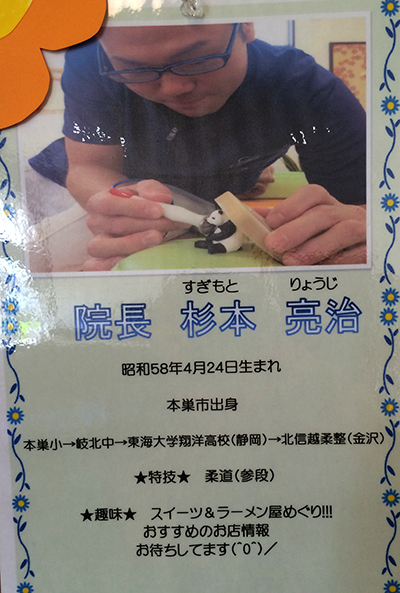 すぎもと りょうじ
院長 杉本 亮治
昭和58年4月24日生まれ
本巣市出身
本巣小→岐北中→東海大学翔洋高校(静岡)→北信越柔整(金沢)
★特技★ 柔道(参段)
★趣味★ スイーツ&ラーメン屋めぐり!!!
おすすめのお店情報
お待ちしてます(^0^)／